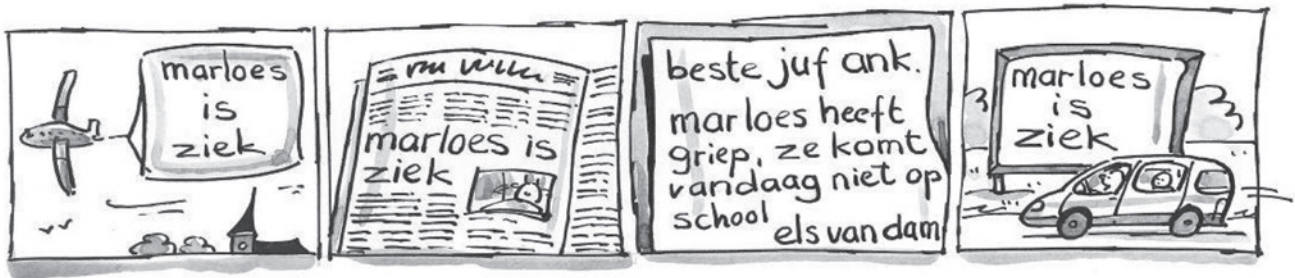 marloes
is
ziek
marloes is
ziek
beste juf ank.
marloes heeft
griep, ze komt
vandaag niet op
school
els van dam
marloes
is
ziek